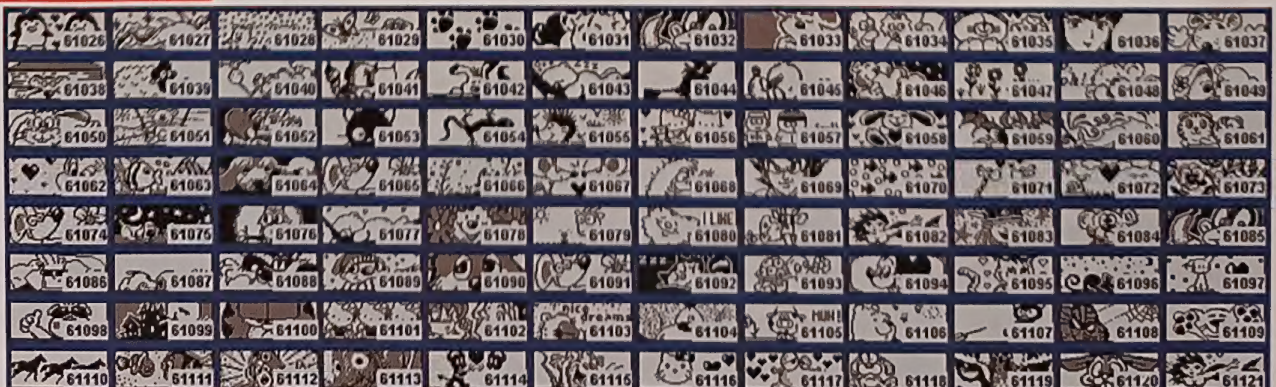 61026 61027 61028 61029 61030 61031 61032 61033 61034 61035 61036 61037
61038 61039 61040 61041 61042 61043 61044 61045 61046 61047 61048 61049
61050 61051 61052 61053 61054 61055 61056 61057 61058 61059 61060 61061
61062 61063 61064 61065 61066 61067 61068 61069 61070 61071 61072 61073
I LIKE
61074 61075 61076 61077 61078 61079 61080 61081 61082 61083 61084 61085
61086 61087 61088 61089 61090 61091 61092 61093 61094 61095 61096 61097
dreams HUH!
61098 61099 61100 61101 61102 61103 61104 61105 61106 61107 61108 61109
61110 61111 61112 61113 61114 61115 61116 61117 61118 61119 61120 61121